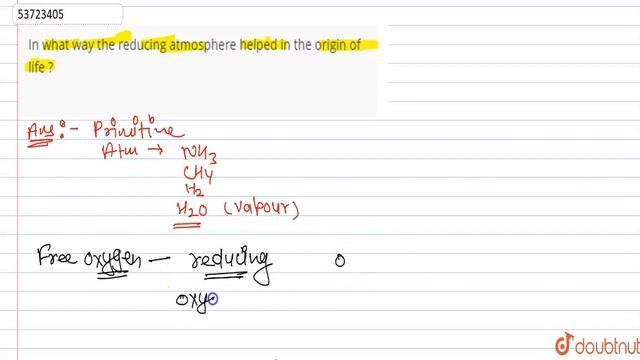 53723405
In what way the reducing atmosphere helped in the origin of
life ?
Ans :- Primitive
Atm → NH3
CH4
H2
H2O (vapour)
Free oxygen — reducing o
oxyg
doubtnut